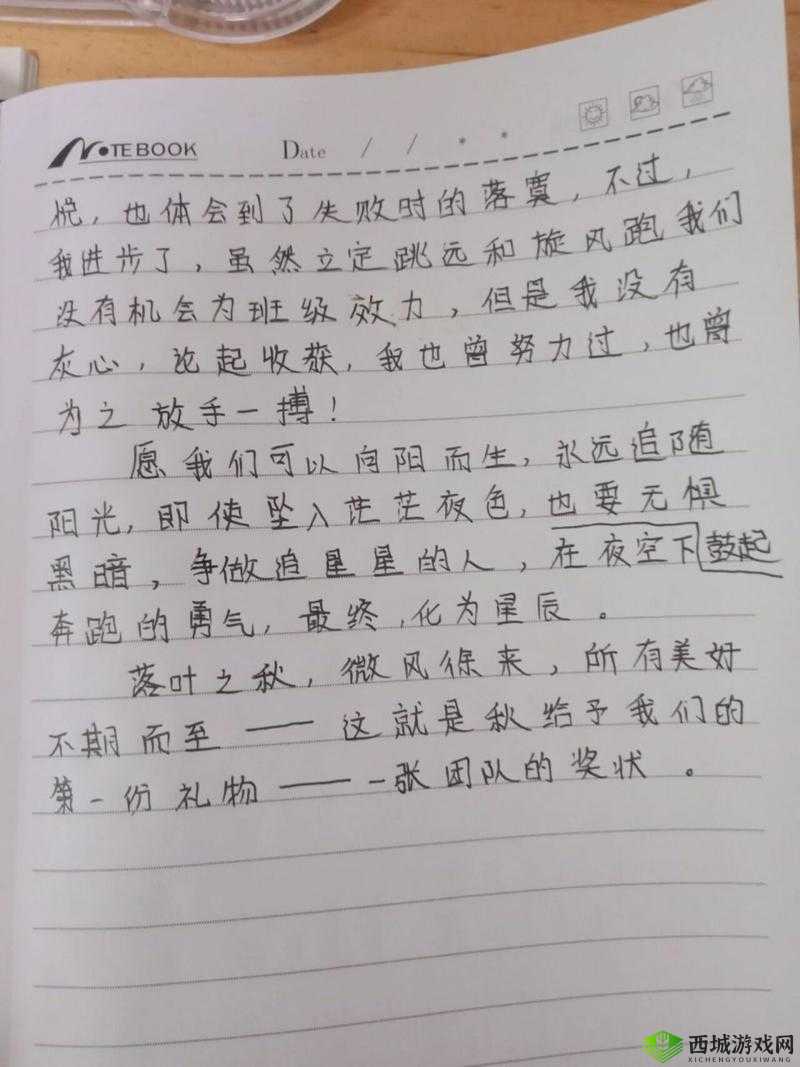 NOTEBOOK Date / /
悦，也体会到了失败时的落寞，不过，
我进步了，虽然立定跳远和旋风跑我们
没有机会为班级效力，但是我没有
灰心，论起收获，我也曾努力过，也曾
为之放手一搏！
愿我们可以向阳而生，永远追随
阳光，即使坠入茫茫夜色，也要无惧
黑暗，争做追星星的人，在夜空下鼓起
奔跑的勇气，最终，化为星辰。
落叶之秋，微风徐来，所有美好
不期而至——这就是秋给予我们的
第一份礼物——一张团队的奖状。
西城游戏网
XICHENGYOUXIWANG